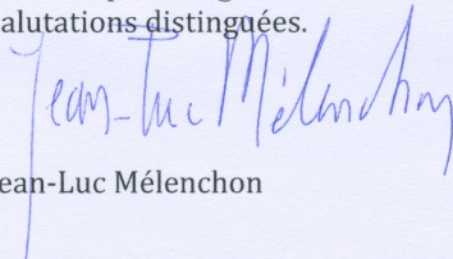 alutations distinguées.
Jean-Luc Mélenchon
ean-Luc Mélenchon